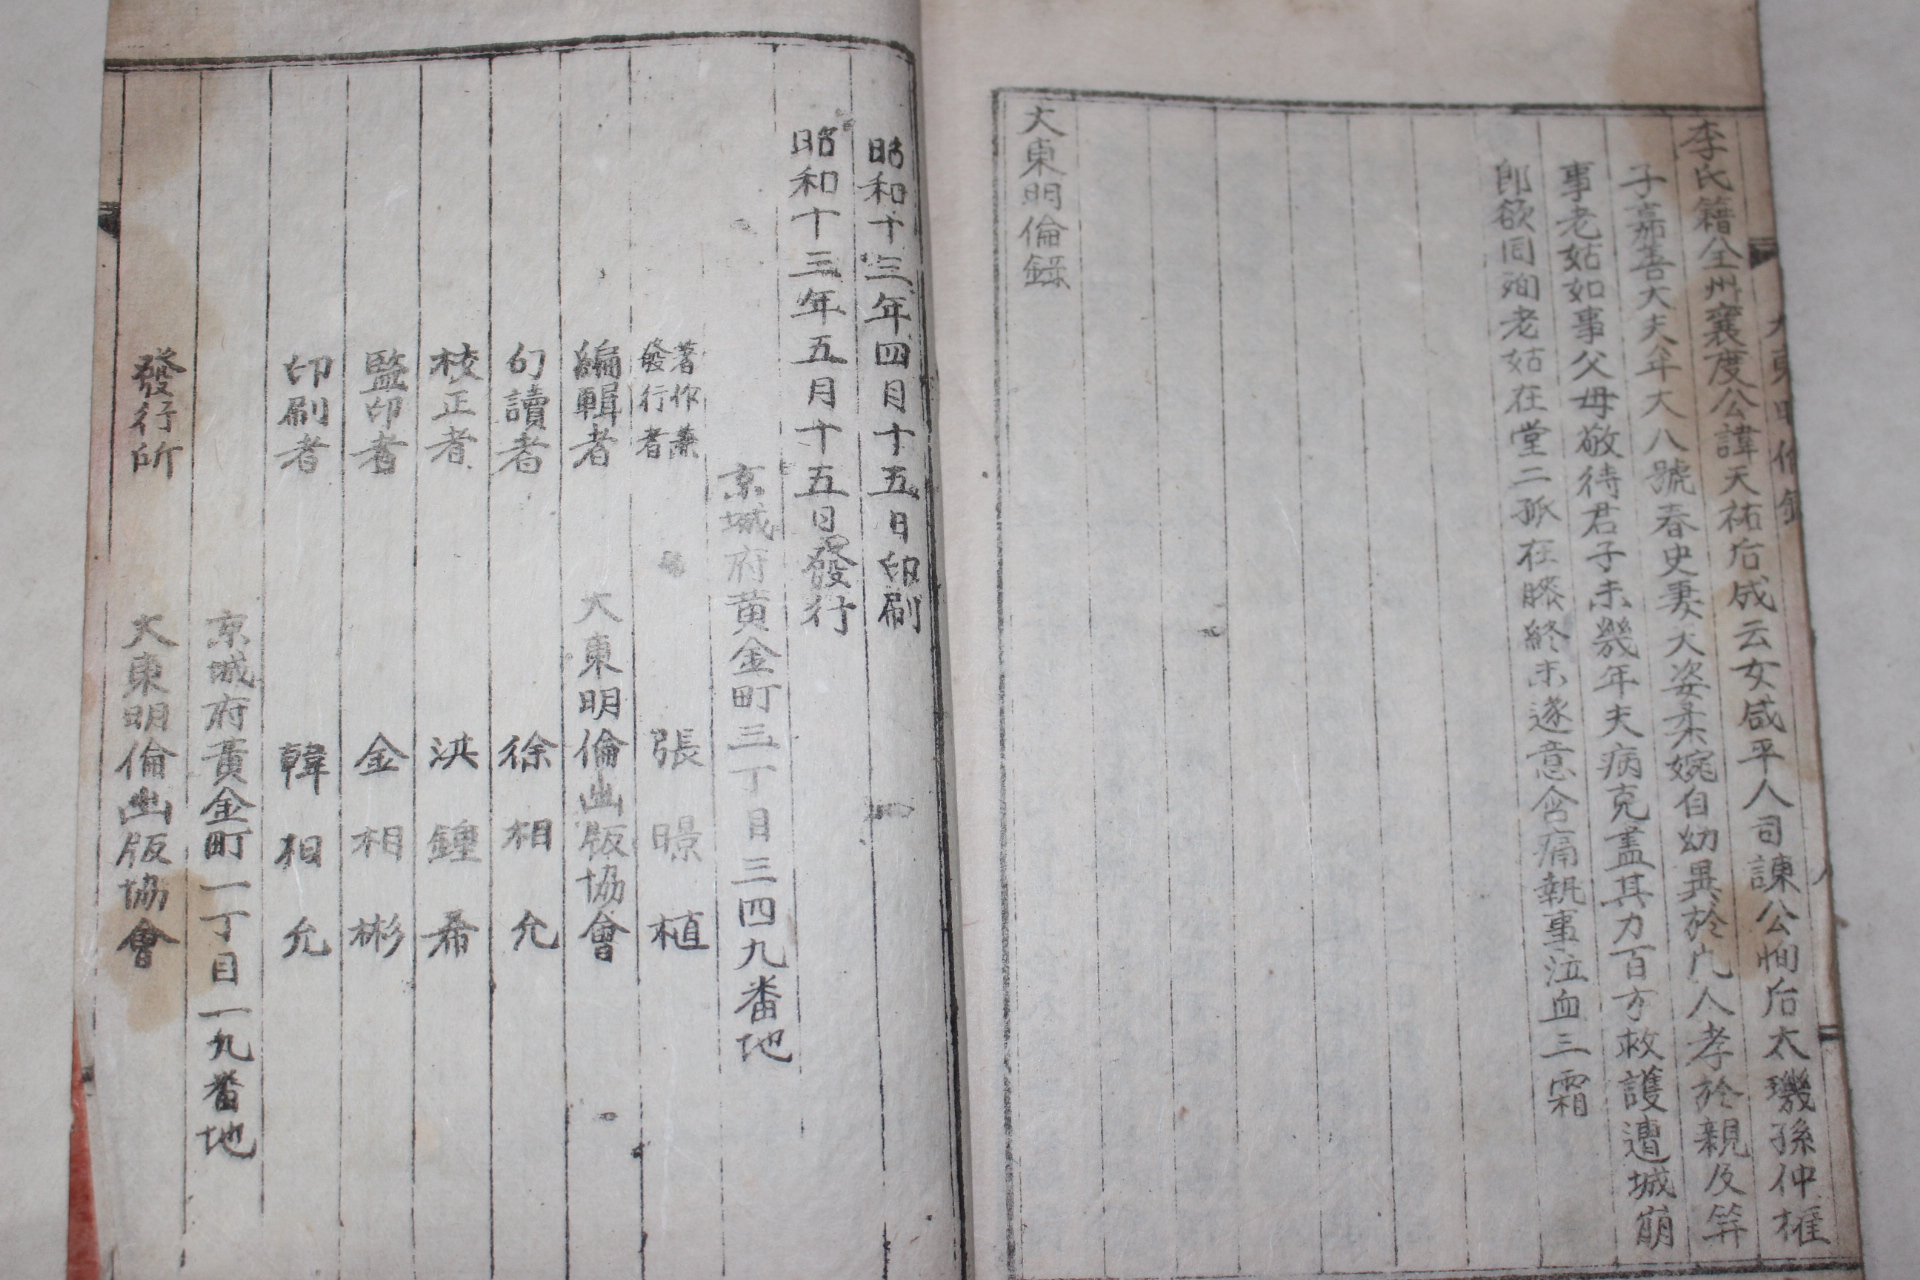 李氏籍全州襄度公諱天祐后成云女咸平人司諫公恂后太璣孫仲權
子嘉善大夫年大八號春史妻天姿柔婉自幼異於凡人孝於親及笄
事老姑如事父母敬待君子未幾年夫病克盡其力百方救護遭城崩
郎欲同殉老姑在堂二孤在膝終未遂意含痛執事泣血三霜
大東明倫錄
昭和十三年四月十五日印刷
昭和十三年五月十五日發行
京城府黃金町三丁目三四九番地
著作兼發行者 張暻植
編輯者 大東明倫出版協會
句讀者 徐相允
校正者 洪鍾希
監印者 金相彬
印刷者 韓相允
京城府黃金町一丁目一九番地
發行所 大東明倫出版協會